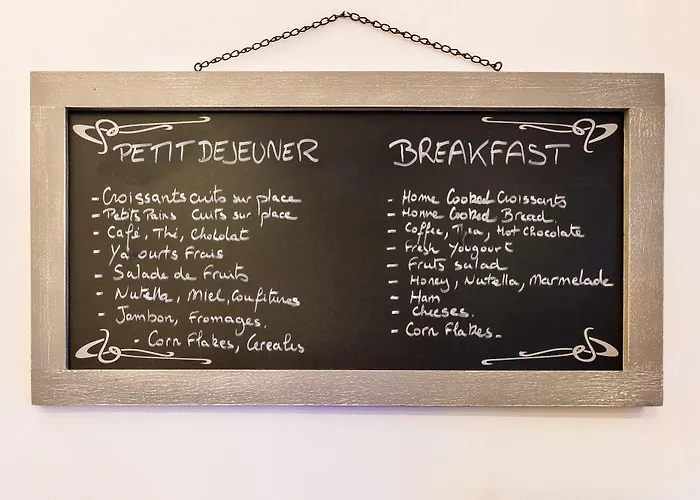 PETIT DEJEUNER
- Croissants cuits sur place
- Petits Pains cuits sur place
- Café, Thé, Chocolat
- Ya ourts Frais
- Salade de Fruits
- Nutella, Miel, Confitures
- Jambon, Fromages.
- Corn Flakes, Cereales
BREAKFAST
- Home Cooked Croissants
- Home Cooked Bread.
- Coffee, Tea, Hot Chocolate
- Fresh Yougourt
- Fruits salad
- Honey, Nutella, Marmelade
- Ham
- Cheeses.
- Corn Flakes.